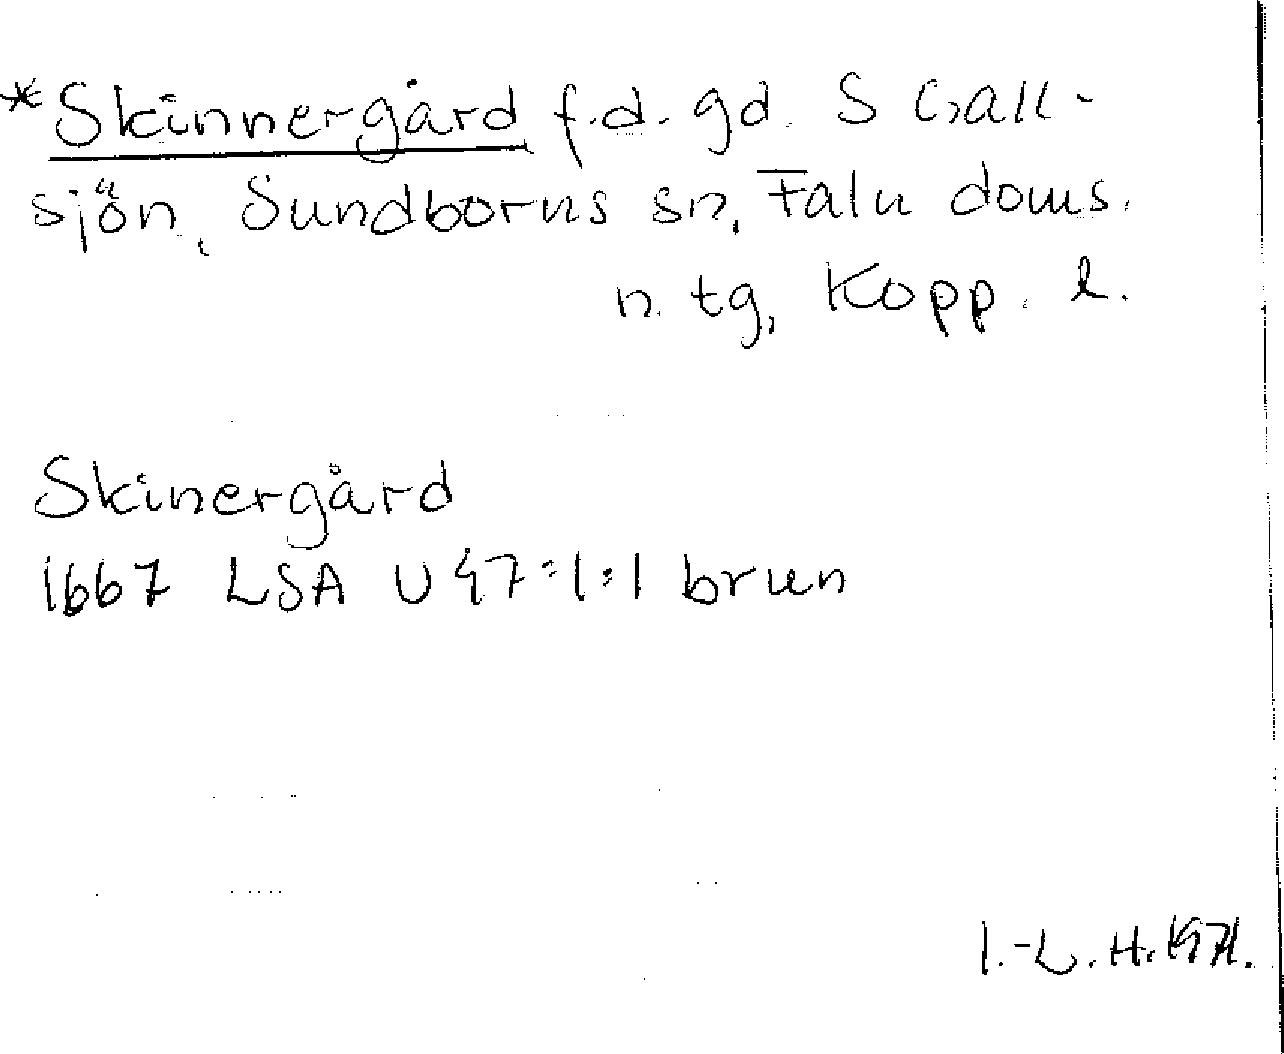 *Skinnergård f.d. gd. S Gall-
sjön, Sundborns sn, Falu doms.
n. tg, Kopp. l.
Skinergård
1667 LSA U 47:1:1 brun
I.-L. H. 1971.